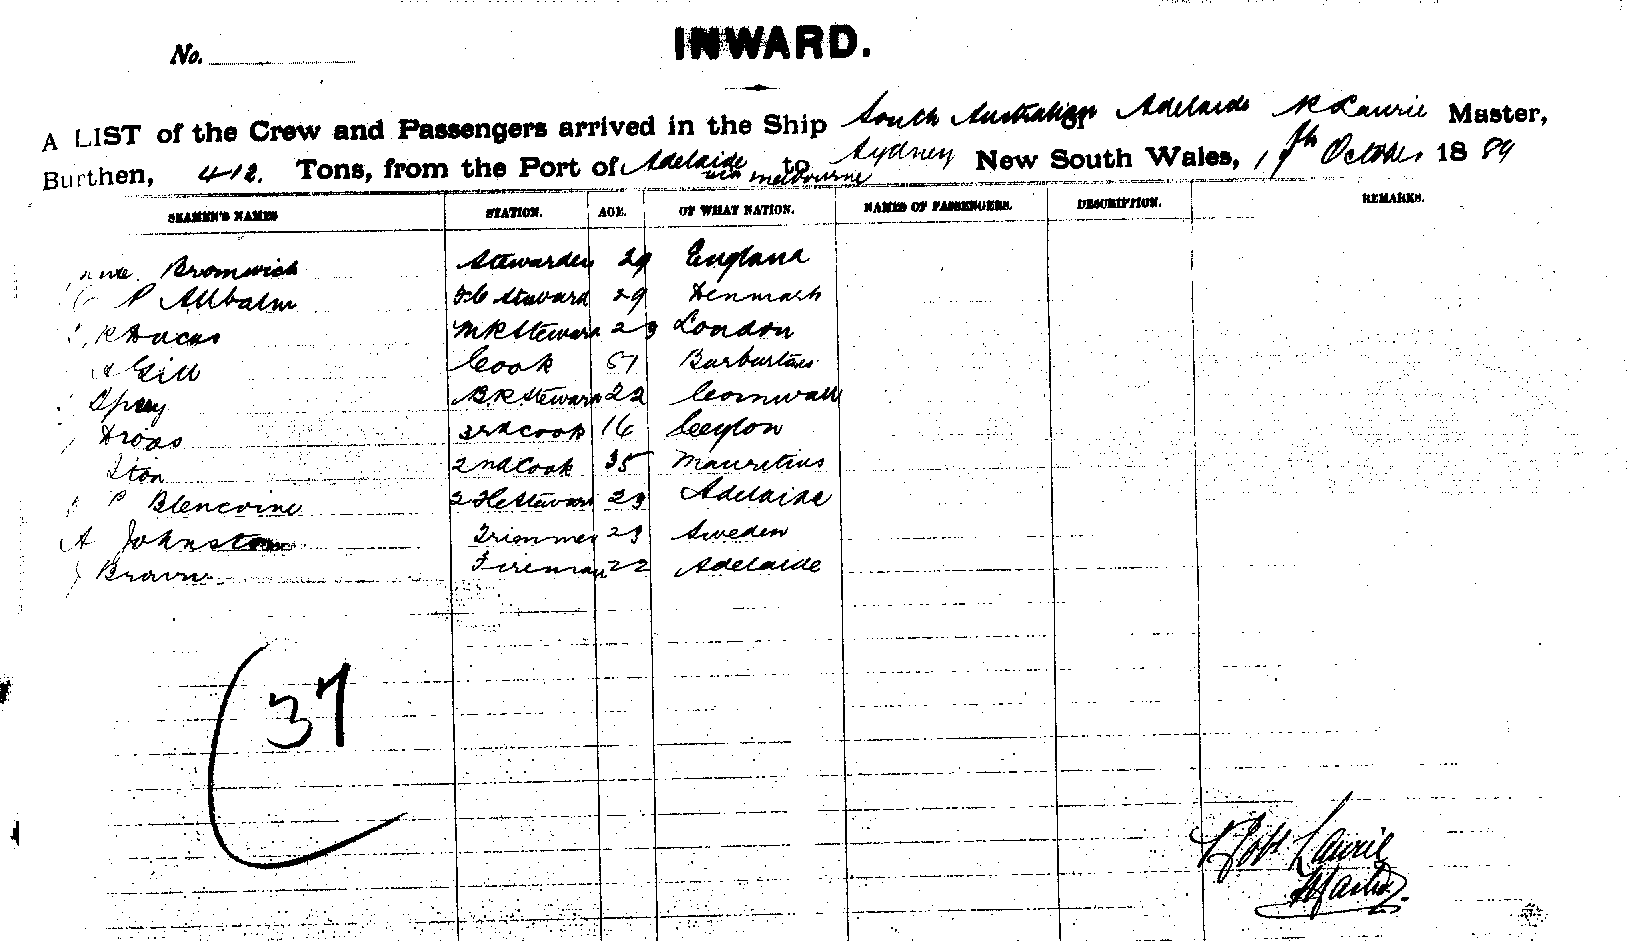 No.
INWARD.
A LIST of the Crew and Passengers arrived in the Ship South Australian Adelaide R Laurie Master,
Burthen, 412. Tons, from the Port of Adelaide via Melbourne to Sydney New South Wales, October 1889
SEAMEN'S NAMES STATION. AGE. OF WHAT NATION. NAMES OF PASSENGERS. DESCRIPTION. REMARKS.
Bromwich Stewardess 29 England
P Allbalm Steward 29 Denmark
Steward 23 London
Gill Cook 51
Spry B R Steward 22 Cornwall
3rd Cook 16 Ceylon
2nd Cook 35 Mauritius
P Steward 23 Adelaide
A Johnston Trimmer 23 Sweden
J Brown Fireman 22 Adelaide
37
Robt Laurie
Master